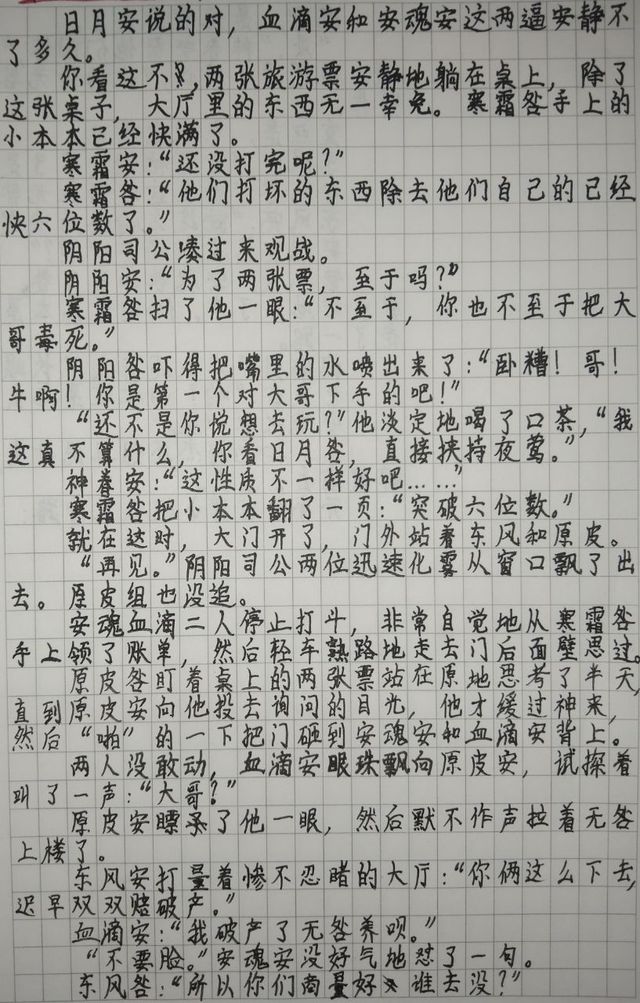 日月安说的对，血滴安和安魂安这两逼安静不
了多久。
你看这不，两张旅游票安静地躺在桌上，除了
这张桌子，大厅里的东西无一幸免。寒霜咎手上的
小本本已经快满了。
寒霜安：“还没打完呢？”
寒霜咎：“他们打坏的东西除去他们自己的已经
快六位数了。”
阴阳司公凑过来观战。
阴阳安：“为了两张票，至于吗？”
寒霜咎扫了他一眼：“不至于，你也不至于把大
哥毒死。”
阴阳咎吓得把嘴里的水喷出来了：“卧糟！哥！
牛啊！你是第一个对大哥下手的吧！”
“还不是你说想去玩？”他淡定地喝了口茶，“我
这真不算什么，你看日月咎，直接挟持夜莺。”
神眷安：“这性质不一样好吧……”
寒霜咎把小本本翻了一页：“突破六位数。”
就在这时，大门开了，门外站着东风和原皮。
“再见。”阴阳司公两位迅速化雾从窗口飘了出
去。原皮组也没追。
安魂血滴二人停止打斗，非常自觉地从寒霜咎
手上领了账单，然后轻车熟路地走去门后面壁思过。
原皮咎盯着桌上的两张票站在原地思考了半天，
直到原皮安向他投去询问的目光，他才缓过神来，
然后“啪”的一下把门砸到安魂安和血滴安背上。
两人没敢动，血滴安眼珠飘向原皮安，试探着
叫了一声：“大哥？”
原皮安瞟了他一眼，然后默不作声拉着无咎
上楼了。
东风安打量着惨不忍睹的大厅：“你俩这么下去，
迟早双双赔破产。”
血滴安：“我破产了无咎养呗。”
“不要脸。”安魂安没好气地怼了一句。
东风咎：“所以你们商量好谁去没？”